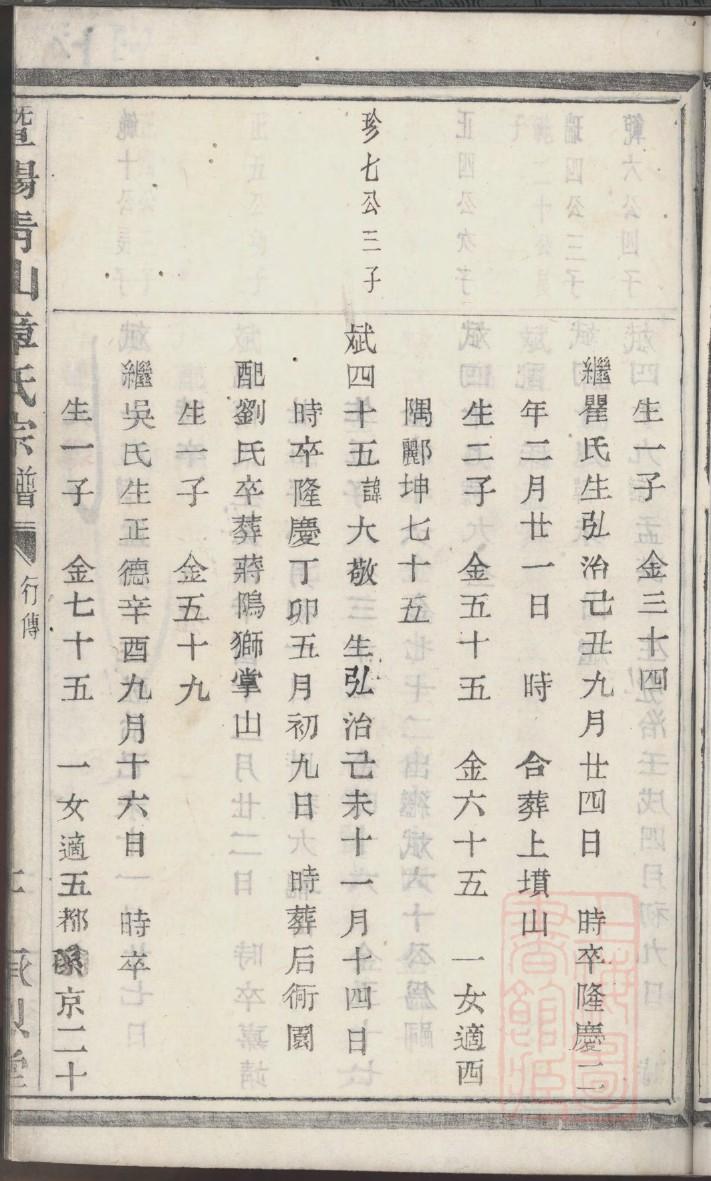 生一子　金三十四
繼瞿氏生弘治己丑九月廿四日　時卒隆慶二
年二月廿一日　時　合葬上墳山
生二子　金五十五　金六十五　一女適西
隅酈坤七十五
珍七公三子
斌四十五諱大敬　生弘治己未十一月十四日
時卒隆慶丁卯五月初九日　時葬后衕園
配劉氏卒葬蔣隝獅掌山
生一子　金五十九
繼吳氏生正德辛酉九月十六日　時卒
生一子　金七十五　一女適五都　京二十
暨陽靑山章氏宗譜　行傳